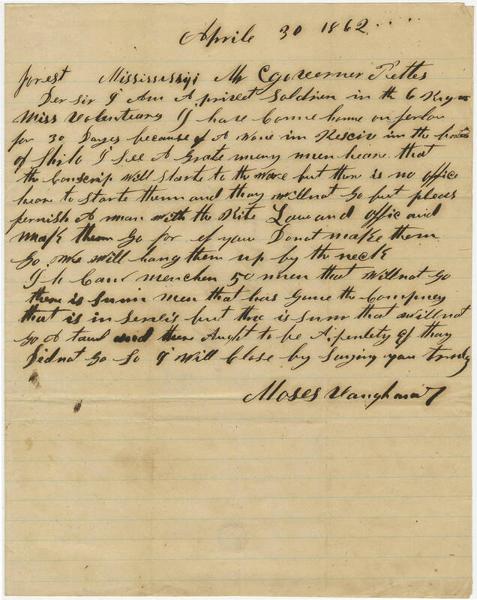 Aprile 30 1862
Forest Mississippi Mr Governer Pettes
Der sir I Am A privet Soldier in the 6 Reg
Miss Volenteary I have Come home on forlow
for 30 Dayes because of A Wone in Resciv in the
of Shilo I See A Grate meny men heare that
the Conscrip Will Starte to the Ware but there is no office
heare to Starte them and thay Will not Go but pleas
fernish A man with the Rite Law and offic and
Make them Go for if you Donot make them
Go We Will hang them up by the neck
I Can menchen 50 men that Will not Go
there is Sum men that has Gone the Compney
that is in Serves but thre is Sum that will not
Go A taul and there Aught to be A penlety if thay
Did not Go So I Will Close by Saying you truly
Moses Vaughn